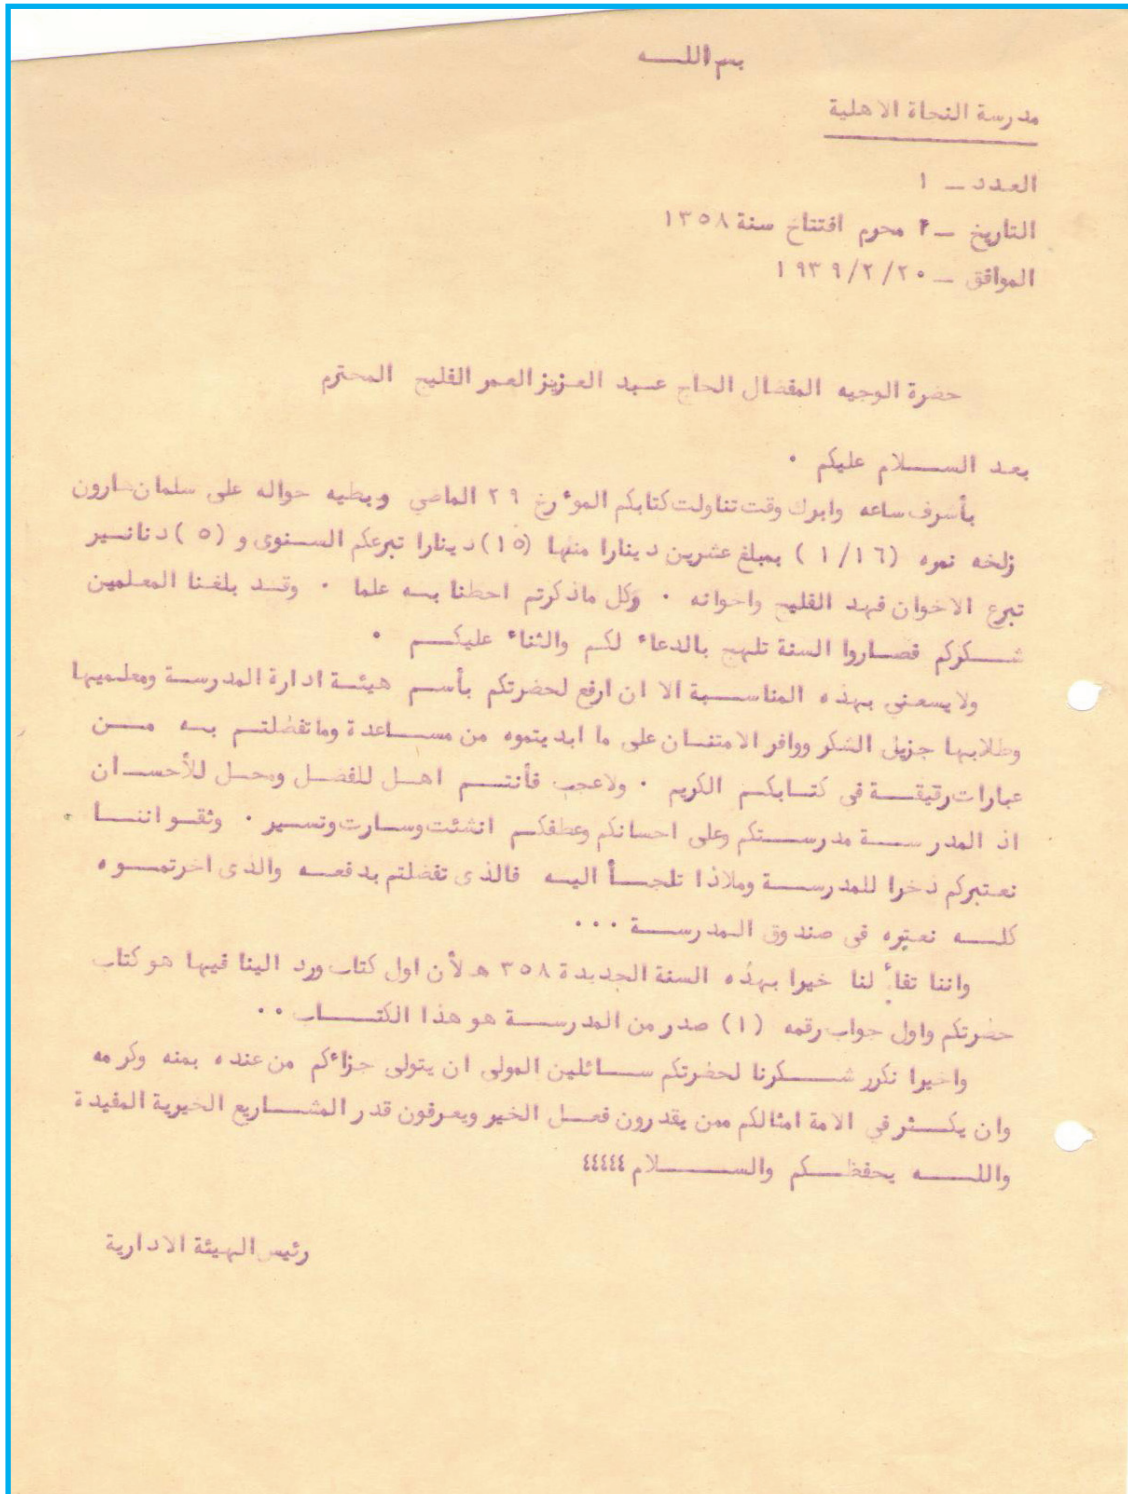 بسم اللـــه
مدرسة النجاة الاهلية
العدد ـ ١
التاريخ ـ ٢ محرم افتتاح سنة ١٣٥٨
الموافق ـ ١٩٣٩/٢/٢٠
حضرة الوجيه المفضال الحاج عبد العزيز العمر الفليج المحترم
بعد الســـلام عليكم ٠
بأشرف ساعه وابرك وقت تناولت كتابكم الموءرخ ٢٩ الماضي وبطيه حواله على سلمان هارون
زلخه نمره (١/١٦ ) بمبلغ عشرين دينارا منها (١٥) دينارا تبرعكم السنوى و (٥ ) دنانير
تبرع الاخوان فهد الفليج واخوانه ٠ وكل ماذكرتم احطنا به علما ٠ وقد بلغنا المعلمين
شــكركم فصاروا السنة تلهج بالدعاء لكم والثناء عليكم ٠
ولايسعني بهذه المناسبة الا ان ارفع لحضرتكم بأسم هيئة ادارة المدرسة ومعلميها
وطلابها جزيل الشكر ووافر الامتنان على ما ابديتموه من مساعدة وماتفضلتم به من
عبارات رقيقة فى كتابكم الكريم ٠ ولاعجب فأنتم اهل للفضل ومحل للأحسان
اذ المدرسة مدرستكم وعلى احسانكم وعطفكم انشئت وسارت وتسير ٠ وثقو اننا
نعتبركم ذخرا للمدرسة وملاذا تلجأ اليه فالذى تفضلتم بدفعه والذى اخرتموه
كله نعتبره فى صندوق المدرسة ٠٠٠
واننا تفاءلنا خيرا بهذه السنة الجديدة ٣٥٨ هـ لأن اول كتاب ورد الينا فيها هو كتاب
حضرتكم واول جواب رقمه (١) صدر من المدرسة هو هذا الكتاب ٠٠
واخيرا نكرر شكرنا لحضرتكم سائلين المولى ان يتولى جزاءكم من عنده بمنه وكرمه
وان يكثر في الامة امثالكم ممن يقدرون فعل الخير ويعرفون قدر المشاريع الخيرية المفيدة
واللـــه يحفظـــكم والســـلام ٤٤٤٤٤
رئيس الهيئة الادارية